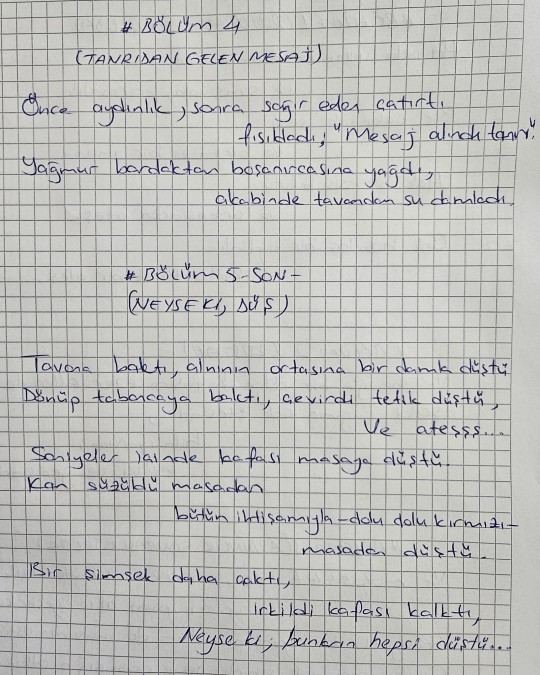 # BÖLÜM 4
(TANRIDAN GELEN MESAJ)
Önce aydınlık, sonra sağır eden çatırtı
fısıkladı, "Mesaj alındı tanrı".
Yağmur bardaktan boşanırcasına yağdı,
akabinde tavandan su damladı.
# BÖLÜM 5-SON-
(NEYSE Kİ, DÜŞ)
Tavana baktı, alnının ortasına bir damla düştü
Dönüp tabancaya baktı, çevirdi tetik düştü,
Ve ateşşş...
Saniyeler içinde kafası masaya düştü.
Kan süzüldü masadan
bütün ihtişamıyla-dolu dolu kırmızı-
masadan düştü.
Bir şimşek daha çaktı,
irkildi kafası kalktı,
Neyse ki, bunların hepsi düştü...